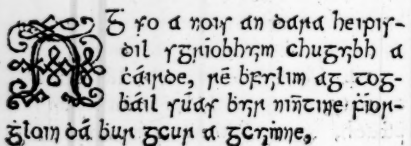 AG so a nois an dara heipis-
dil sgríobhuim chuguibh a
ċáirde, ré bfuilim ag tog-
ḃáil súas bhur ninntine fíor-
ġloin dá bur gcur a gcuimne,